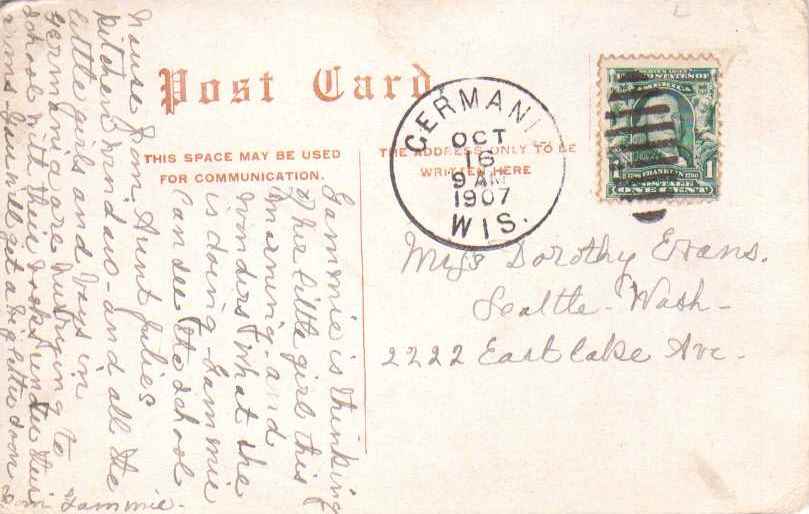 Post Card
THIS SPACE MAY BE USED
FOR COMMUNICATION.
THE ADDRESS ONLY TO BE
WRITTEN HERE
GERMANI
OCT
16
9 AM
1907
WIS.
POSTAGE
1 ONE CENT 1
Miss Dorothy Evans.
Seattle - Wash -
2222 Eastlake Ave -
Gammie is thinking
of her little girl this
morning - and
wonders what she
is doing - Gammie
can see the school
house from Aunt Julies
kitchen window - and all the
little girls and boys in
Germania are hurrying to
school with their books under their
arms - You will get a big letter soon
from Gammie -